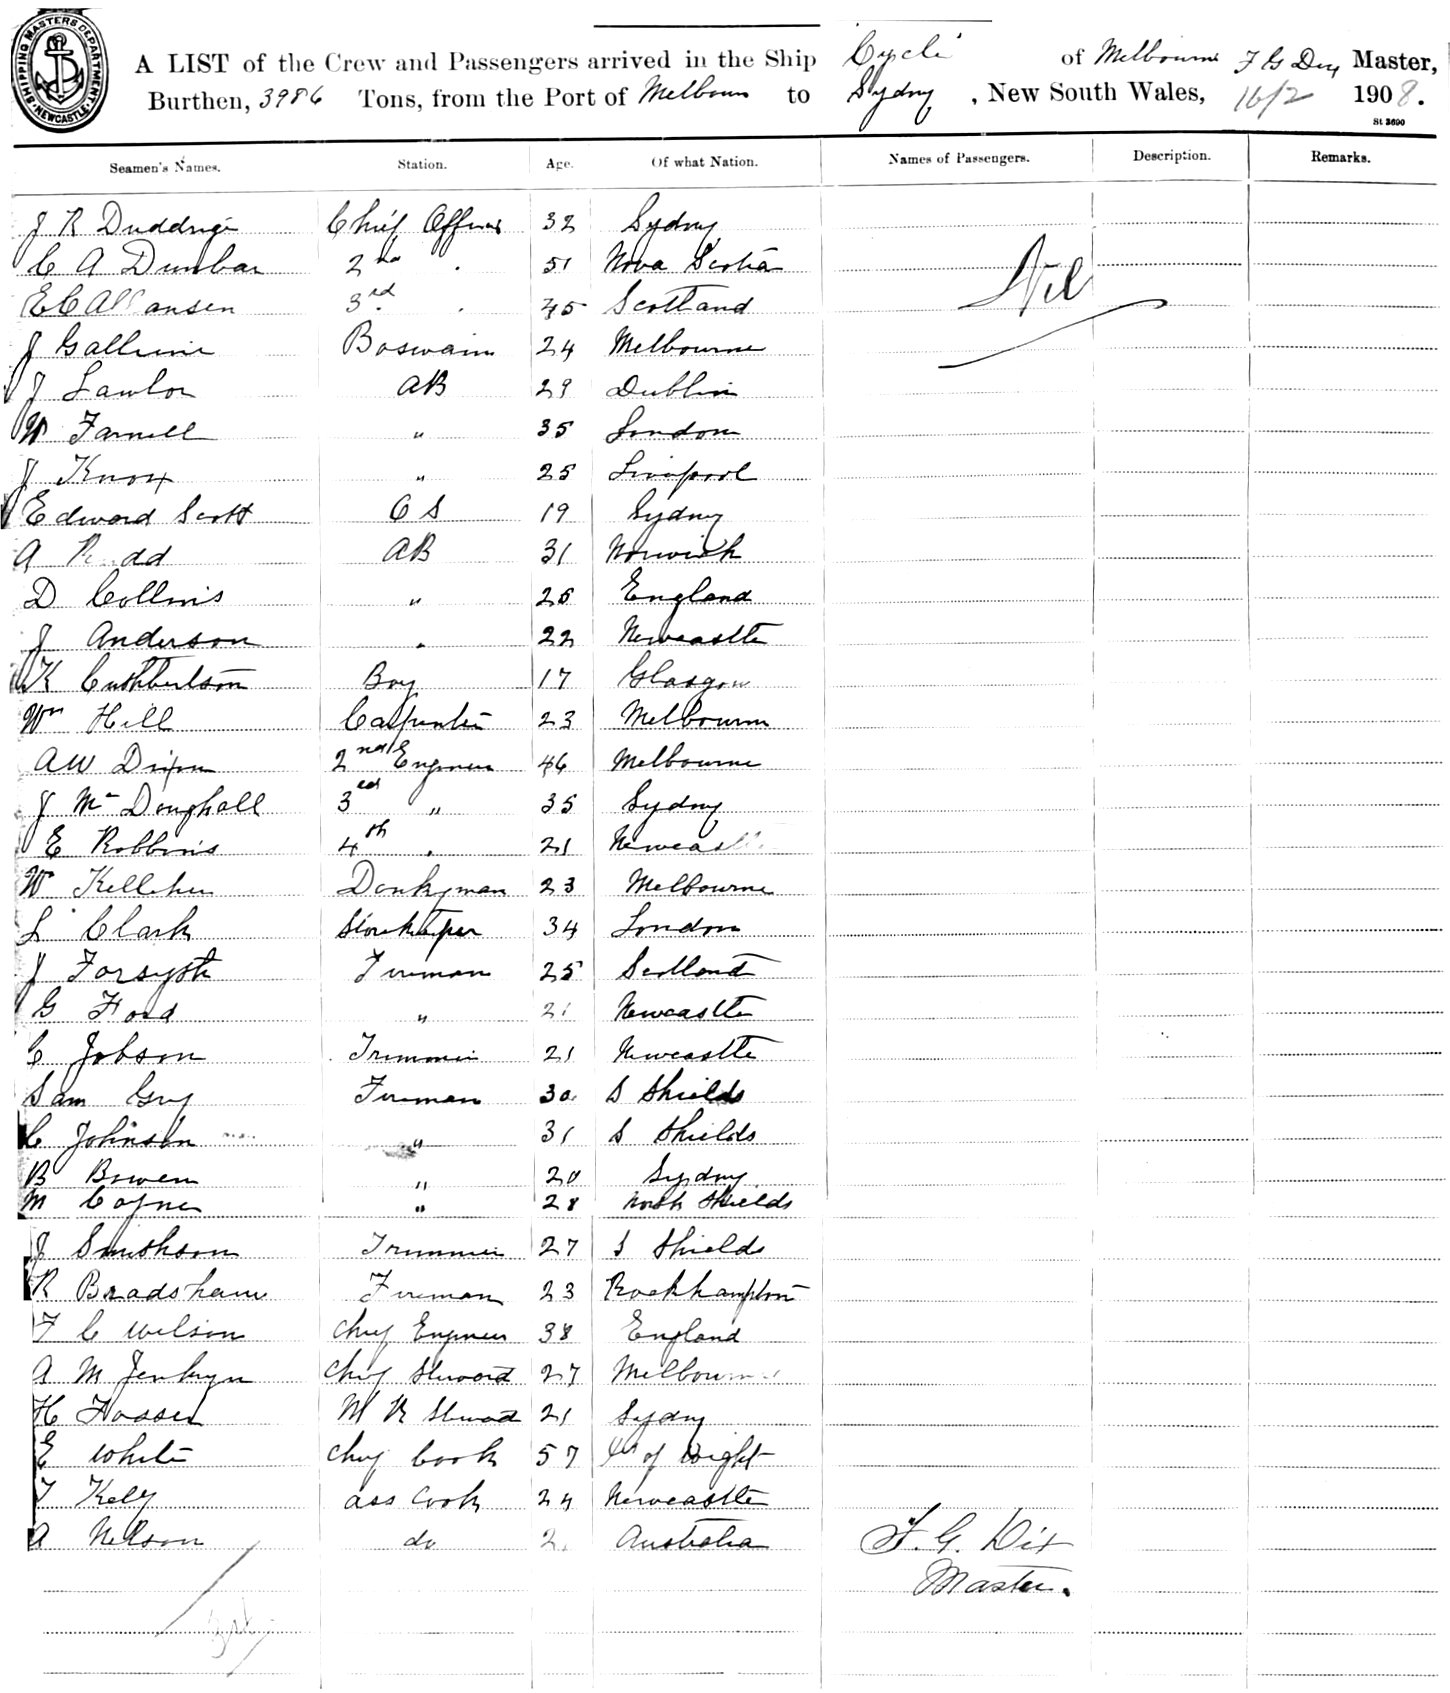 SHIPPING MASTERS DEPARTMENT
NEWCASTLE
A LIST of the Crew and Passengers arrived in the Ship of Melbourne F G Master,
Burthen, 3986 Tons, from the Port of Melbourne to Sydney, New South Wales, 16/2 1908.
St 3690
Seamen's Names. Station. Age. Of what Nation. Names of Passengers. Description. Remarks.
J R Duddridge Chief Officer 32 Sydney
C A Dunbar 2nd " 51 Nova Scotia
Nil
E C A ansen 3rd " 45 Scotland
J Boswain 24 Melbourne
J Lawlor AB 29 Dublin
W Farnell " 35 London
J Knox " 25 Liverpool
Edward Scott OS 19 Sydney
A R dd AB 31 Norwich
D Collins " 25 England
J Anderson " 22 Newcastle
K Cuthbertson Boy 17 Glasgow
Wm Hill Carpenter 23 Melbourne
A W Dixon 2nd Engineer 46 Melbourne
J McDoughall 3rd " 35 Sydney
E Robbins 4th " 21 Newcastle
W Kelleher Donkyman 23 Melbourne
L Clark Storekeeper 34 London
J Forsyth Fireman 25 Scotland
G Ford " 21 Newcastle
C Jobson Trimmer 21 Newcastle
Sam Fireman 30 S Shields
C Johnson " 31 S Shields
B Bowen " 20 Sydney
M Coyne " 28 North Shields
J Smithson Trimmer 27 S Shields
R Bradshaw Fireman 23 Rockhampton
F C Wilson Chief Engineer 38 England
A M Jenkyn Chief Steward 27 Melbourne
H M R Steward 21 Sydney
E White Chief Cook 57 of Wight
T Kelly ass Cook 24 Newcastle
A Nelson do 2 Australia
F. G. Dix
Master.